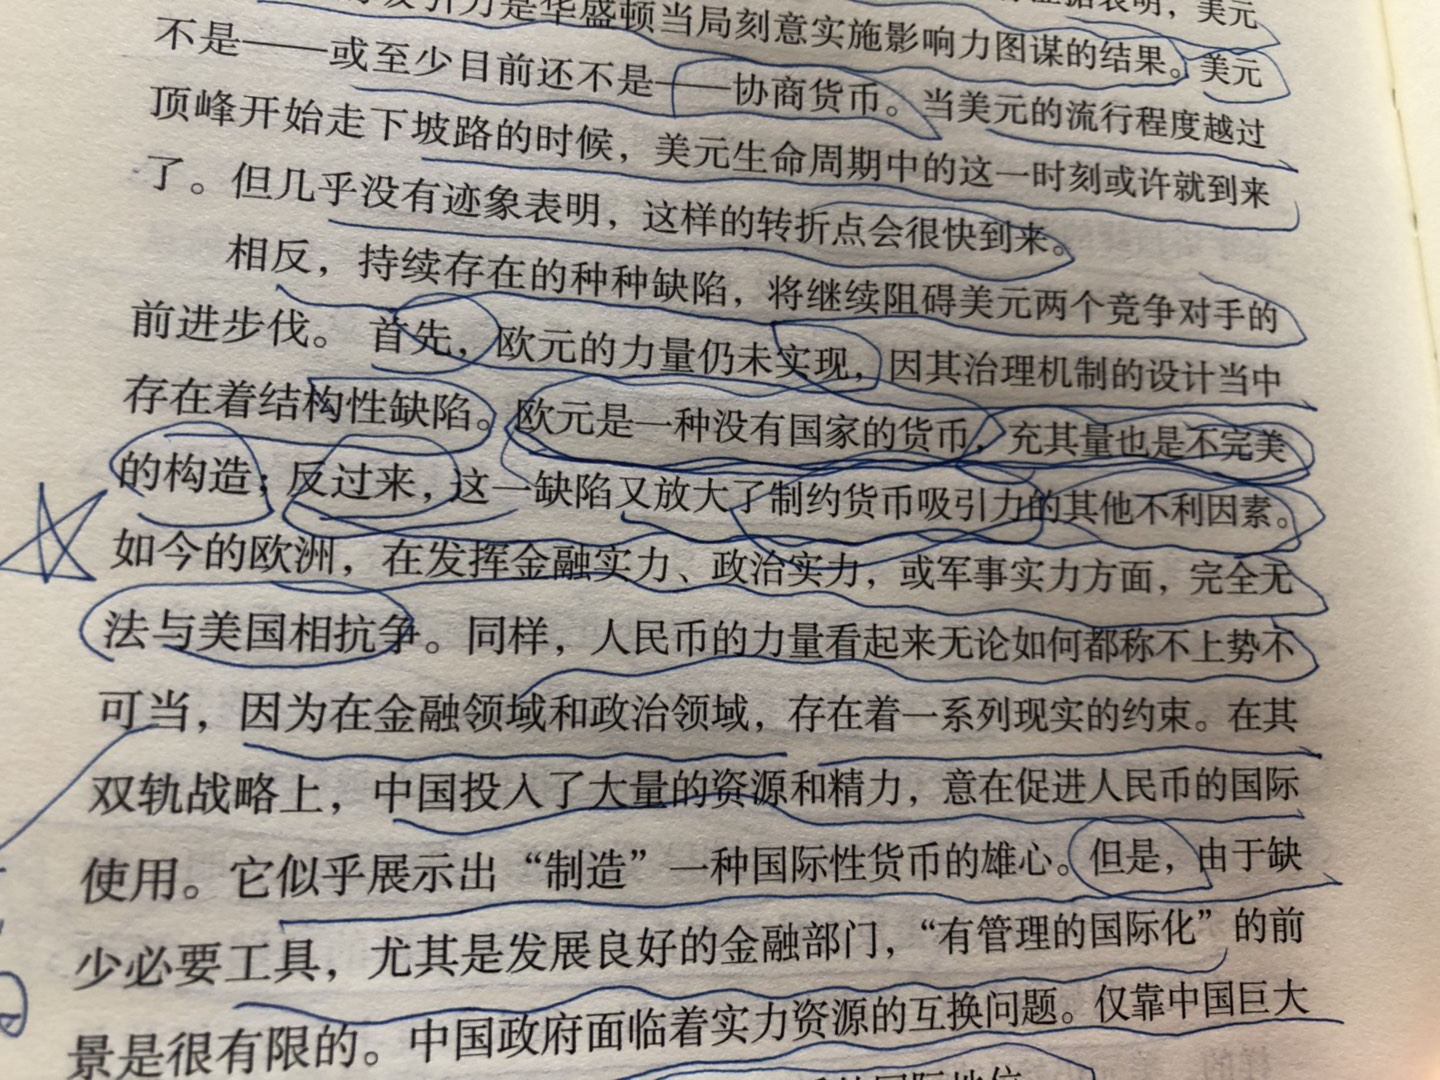 引力是华盛顿当局刻意实施影响力图谋的结果。美元
不是——或至少目前还不是——协商货币。当美元的流行程度越过
顶峰开始走下坡路的时候，美元生命周期中的这一时刻或许就到来
了。但几乎没有迹象表明，这样的转折点会很快到来。
相反，持续存在的种种缺陷，将继续阻碍美元两个竞争对手的
前进步伐。首先，欧元的力量仍未实现，因其治理机制的设计当中
存在着结构性缺陷。欧元是一种没有国家的货币，充其量也是不完美
的构造；反过来，这一缺陷又放大了制约货币吸引力的其他不利因素。
如今的欧洲，在发挥金融实力、政治实力，或军事实力方面，完全无
法与美国相抗争。同样，人民币的力量看起来无论如何都称不上势不
可当，因为在金融领域和政治领域，存在着一系列现实的约束。在其
双轨战略上，中国投入了大量的资源和精力，意在促进人民币的国际
使用。它似乎展示出“制造”一种国际性货币的雄心。但是，由于缺
少必要工具，尤其是发展良好的金融部门，“有管理的国际化”的前
景是很有限的。中国政府面临着实力资源的互换问题。仅靠中国巨大